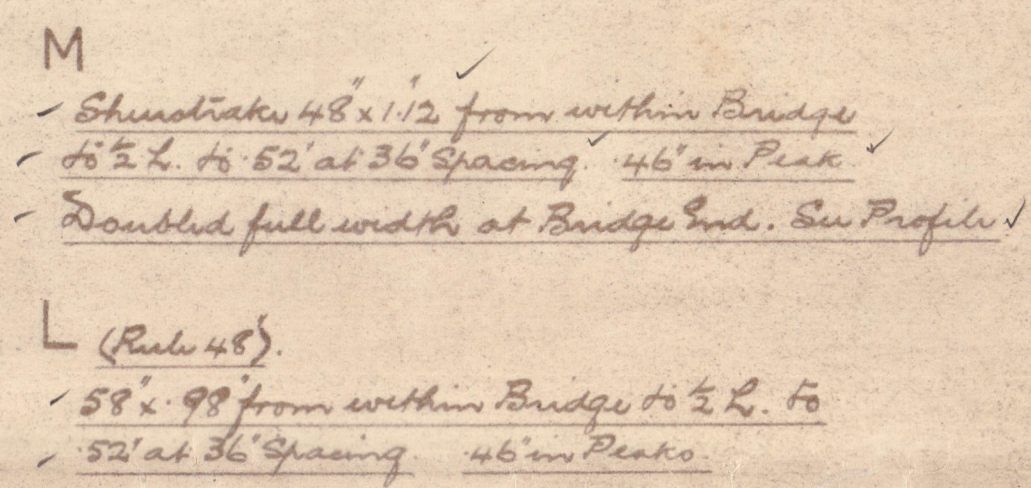 M
Sheerstrake 48" x 1.12" from within Bridge
to ½ L. to .52" at 36" Spacing. .46" in Peak
Doubled full width at Bridge End. See Profile
L (Rule 48").
58" x .98" from within Bridge to ½ L. to
.52" at 36" Spacing .46" in Peaks.